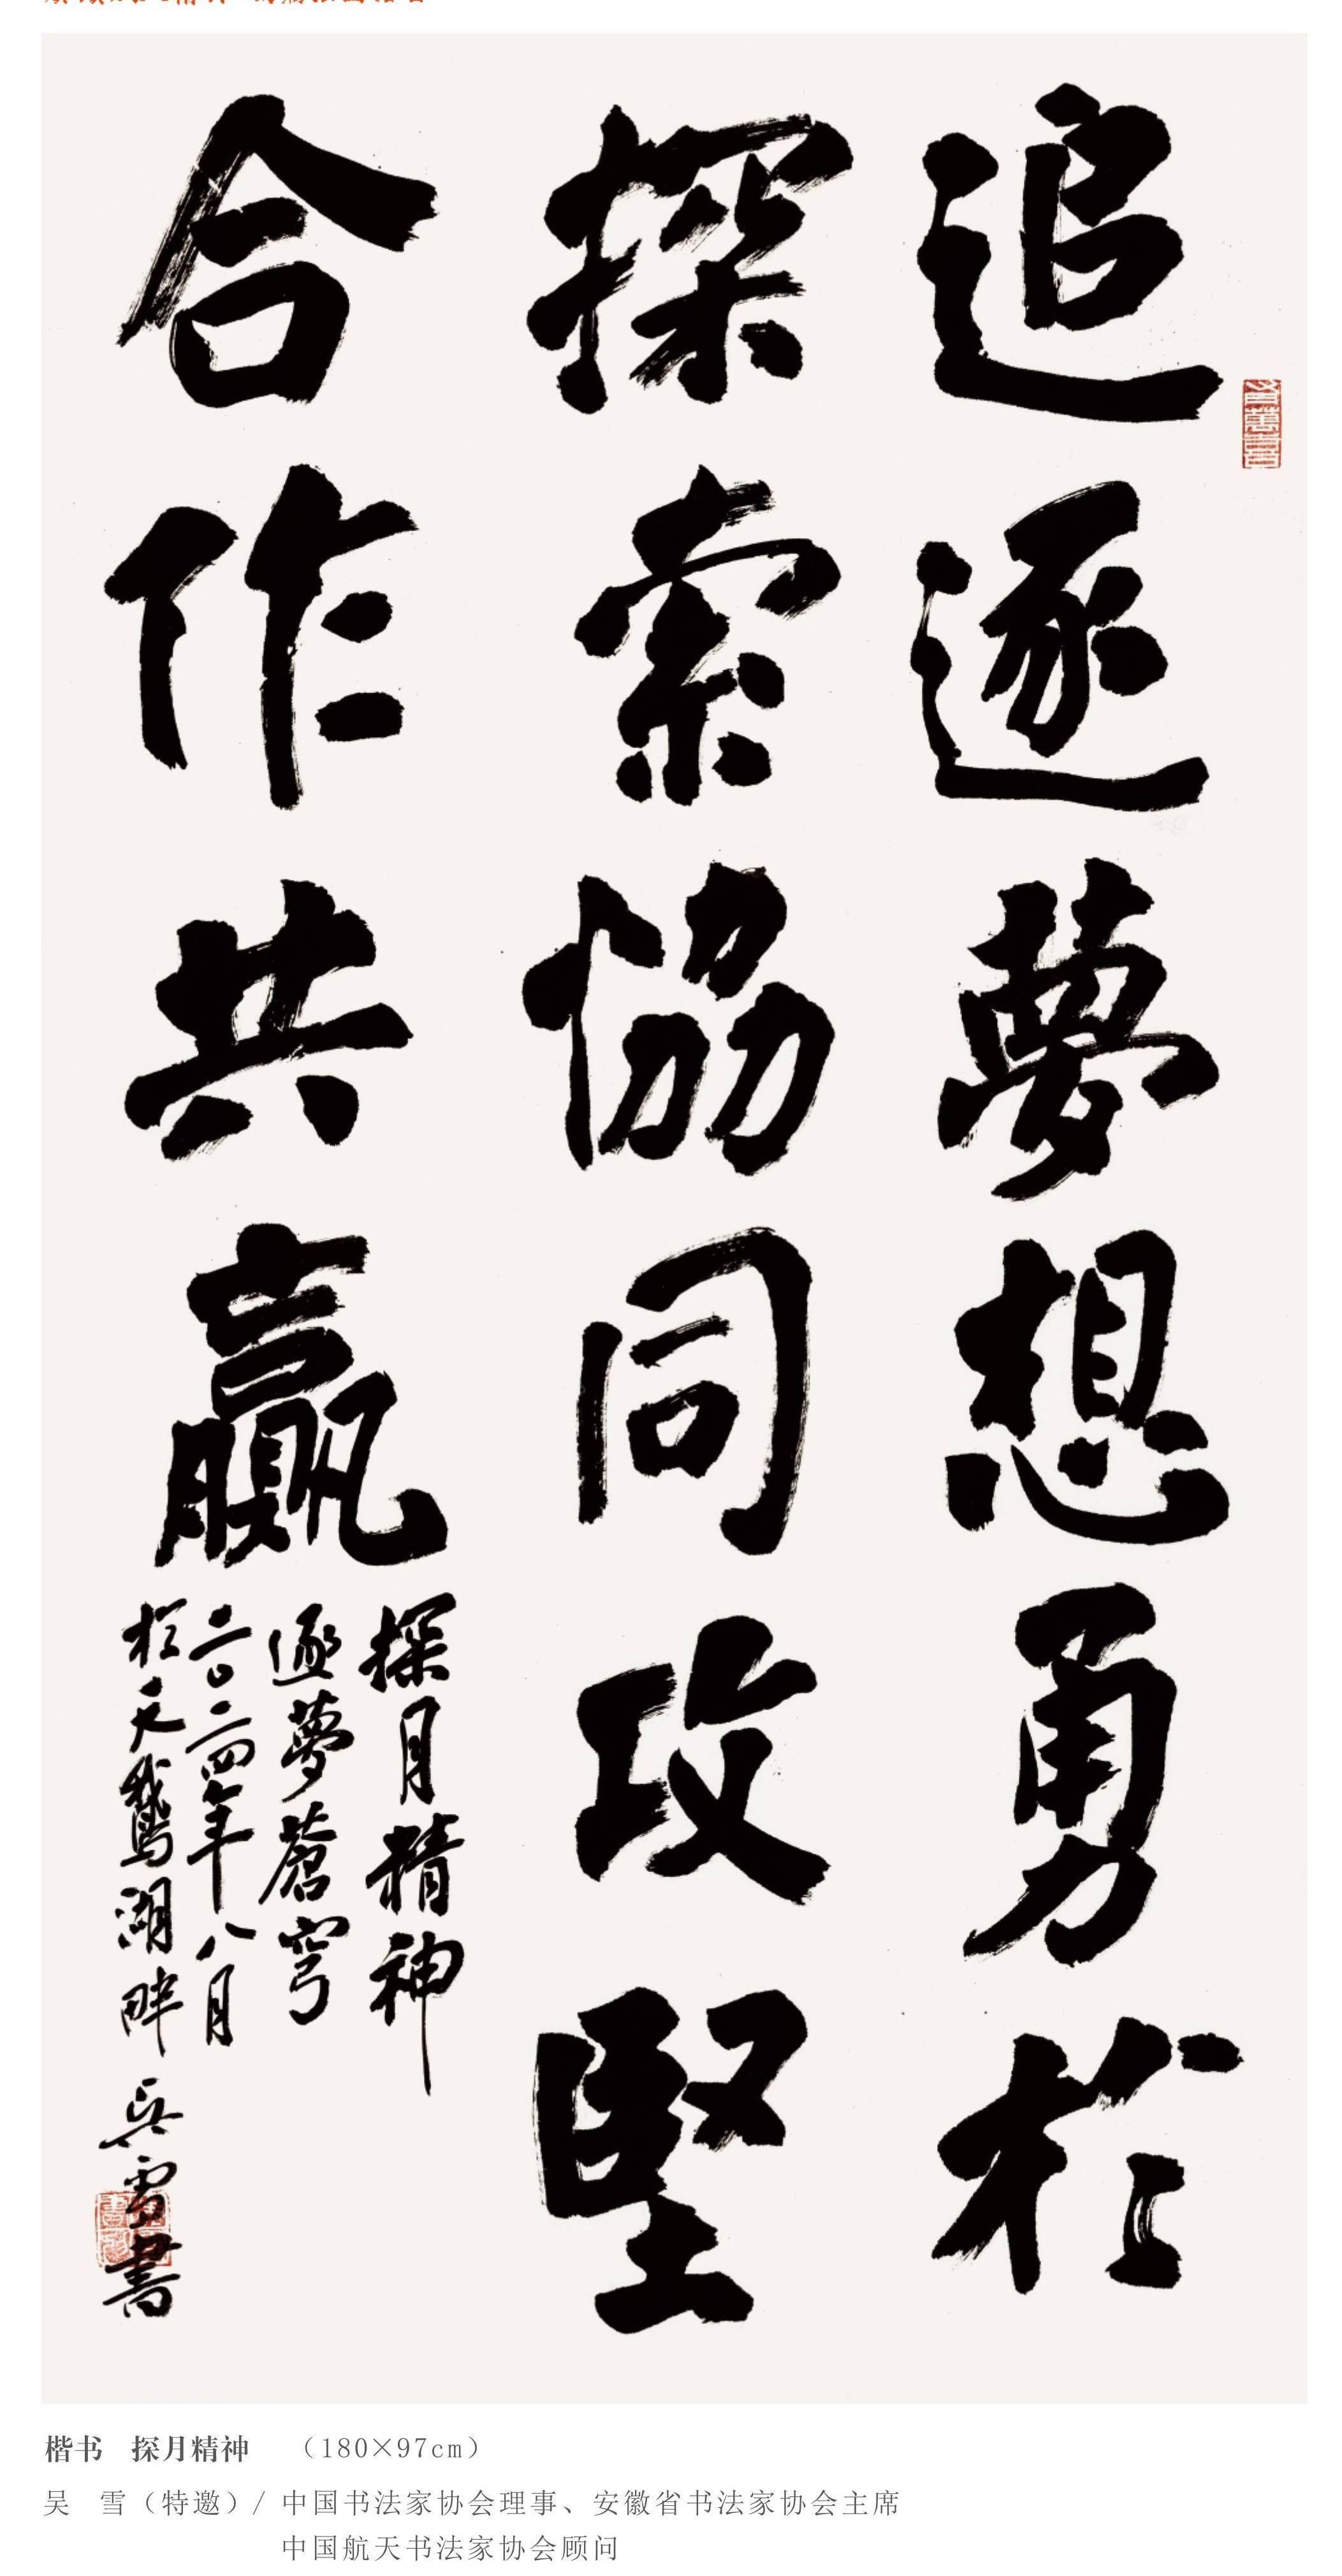 追逐夢想勇於
探索協同攻堅
合作共贏
探月精神
逐夢蒼穹
二〇二四年八月
於天鵝湖畔 吳雪書
楷书 探月精神 （180×97cm）
吴 雪（特邀）/ 中国书法家协会理事、安徽省书法家协会主席
中国航天书法家协会顾问